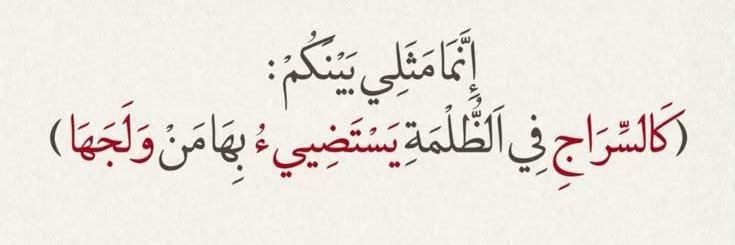 إِنَّمَا مَثَلِي بَيْنَكُمْ:
(كَالسِّرَاجِ فِي الظُّلْمَةِ يَسْتَضِييءُ بِهَا مَنْ وَلَجَهَا)